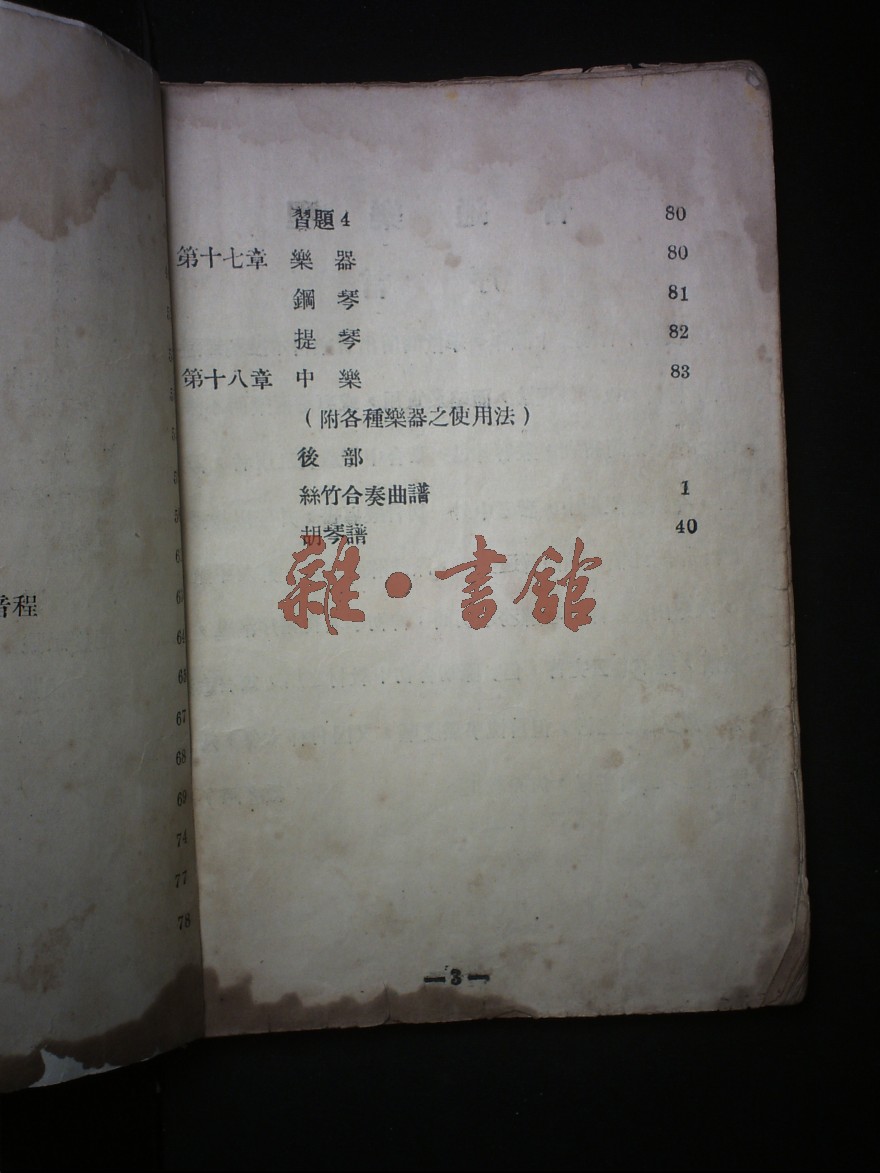 習題4 80
第十七章 樂器 80
鋼琴 81
提琴 82
第十八章 中樂 83
(附各種樂器之使用法)
後部
絲竹合奏曲譜 1
胡琴譜 40
雜•書館
—3—
音程
64
65
67
68
69
74
77
78